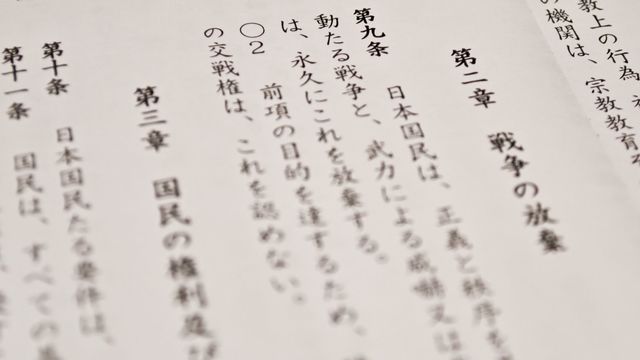 教上の行為
の機関は、宗教教育
第二章　戦争の放棄
第九条　日本国民は、正義と秩序を
動たる戦争と、武力による威嚇又は
は、永久にこれを放棄する。
○2　前項の目的を達するため、
の交戦権は、これを認めない。
第三章　国民の権利及び
第十条　日本国民たる要件は、
第十一条　国民は、すべての